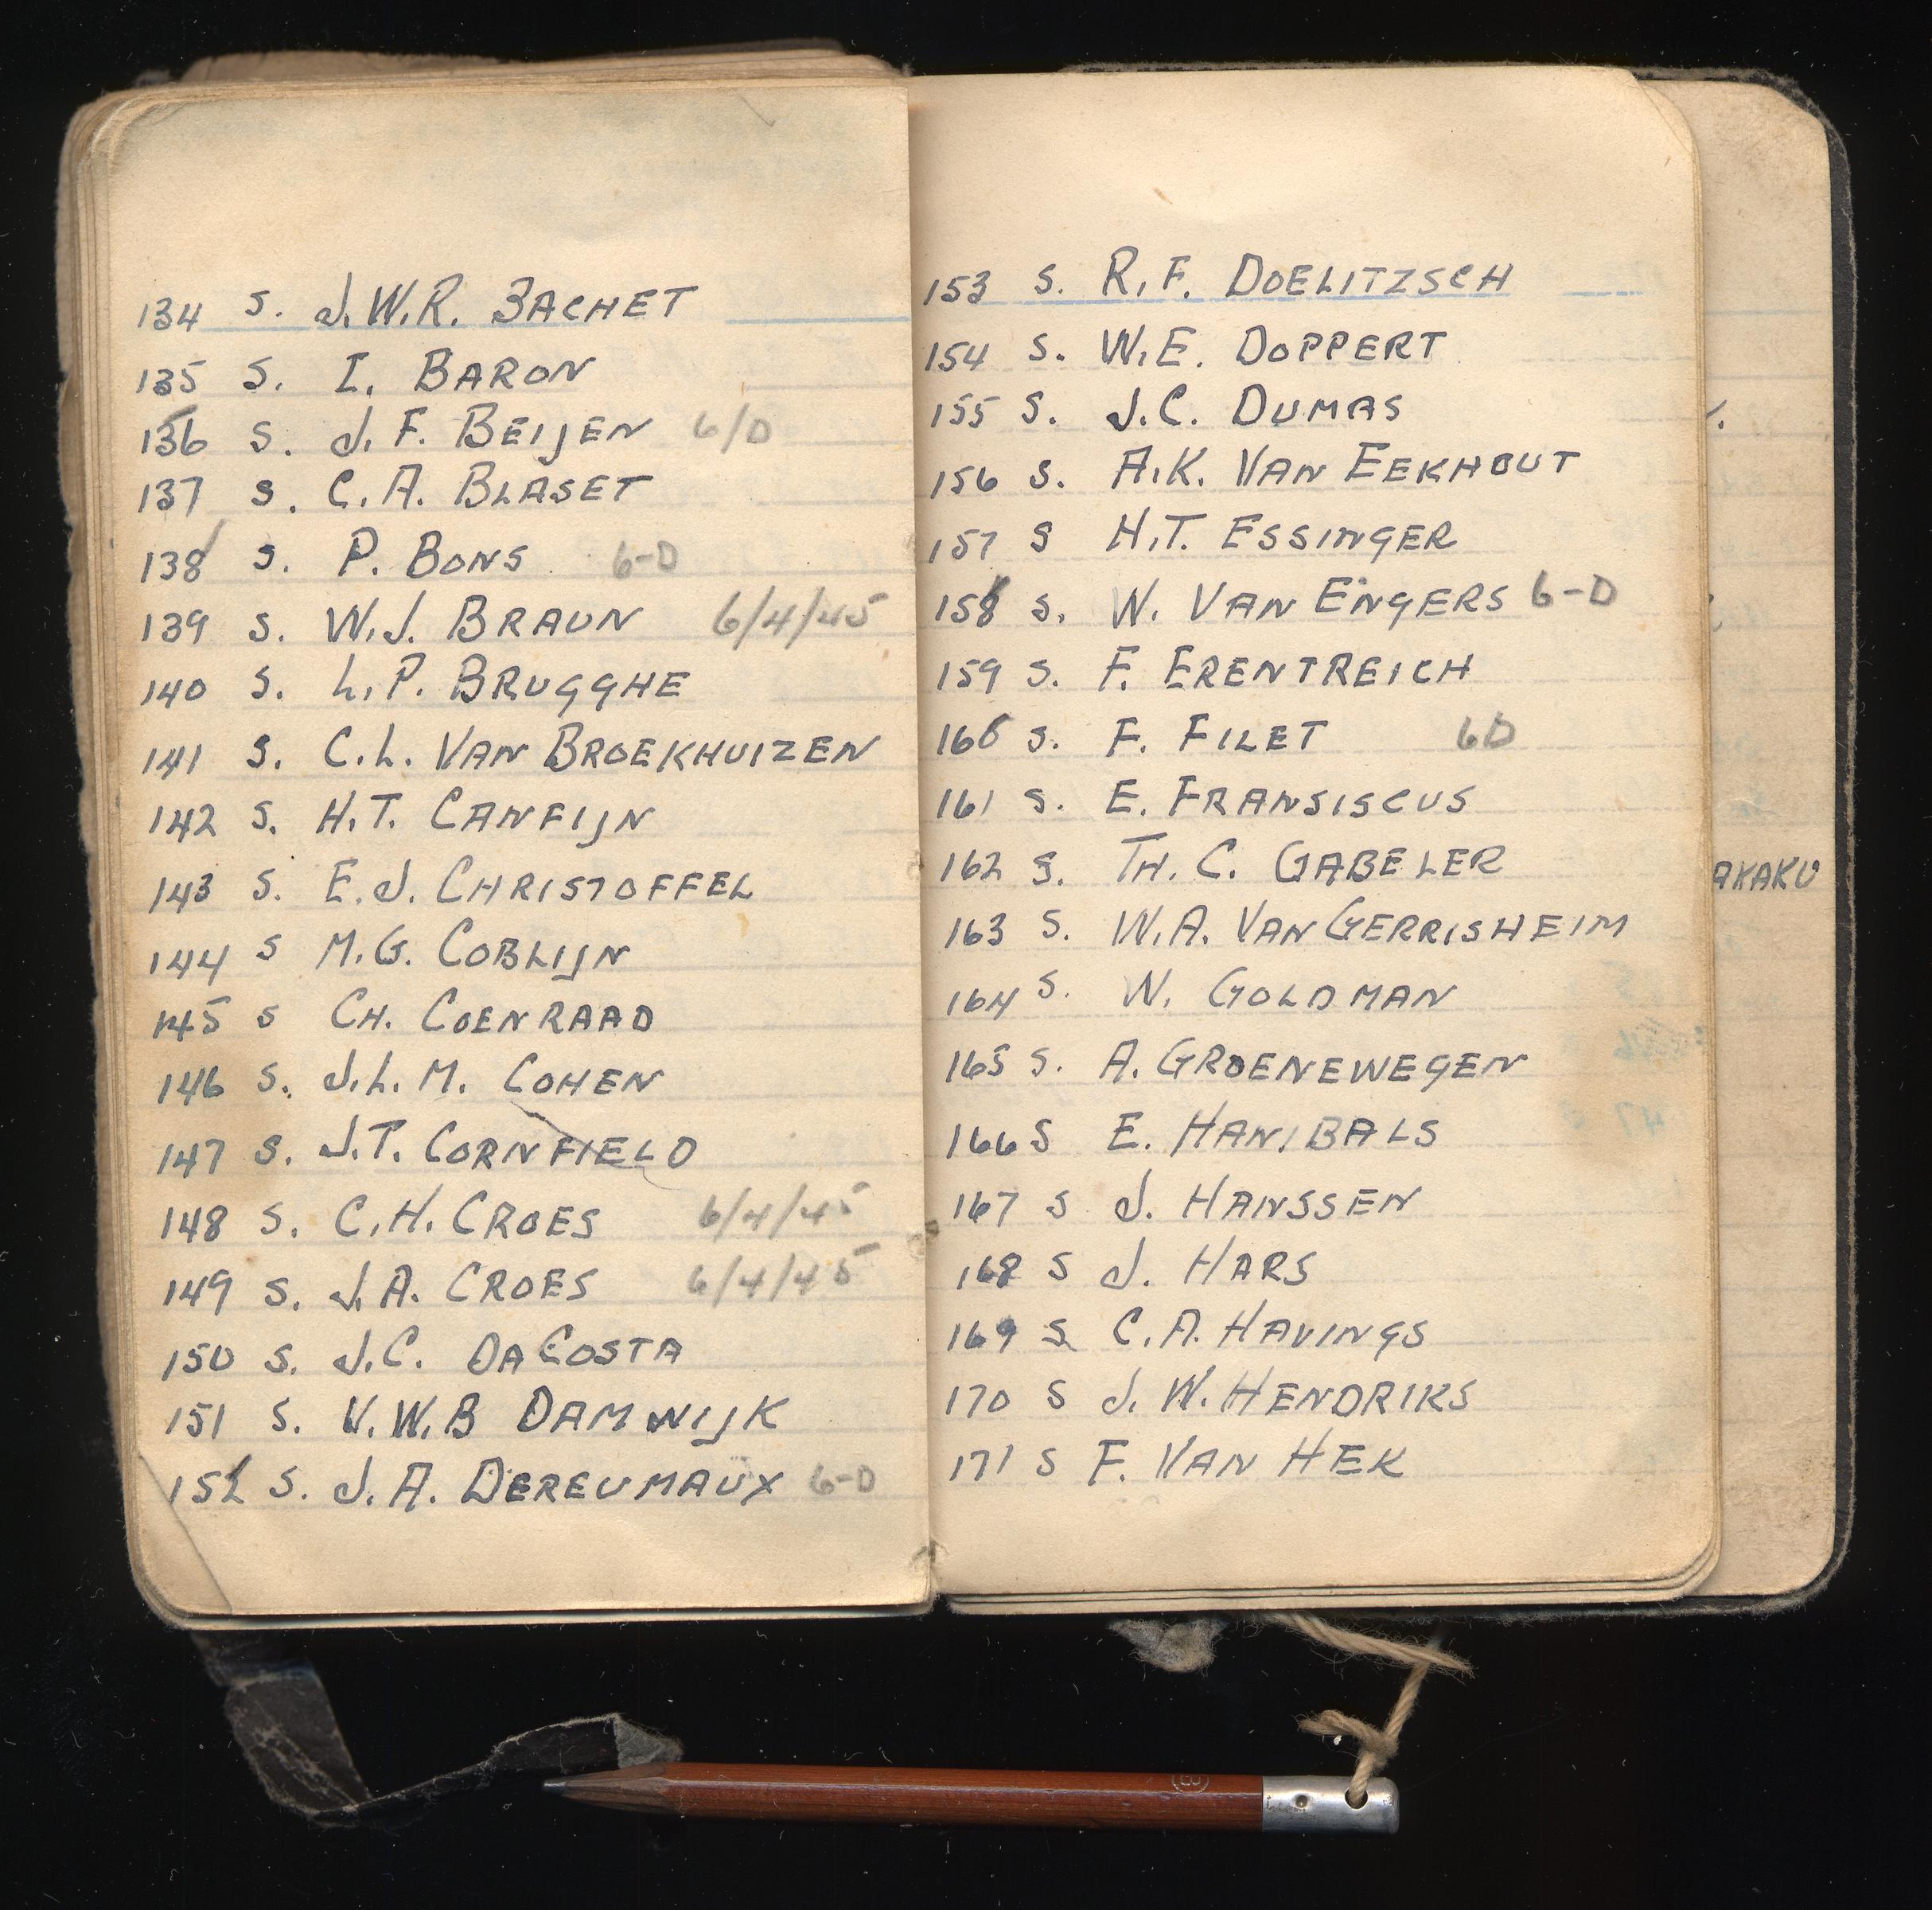 134 S. J.W.R. BACHET
135 S. I. BARON
136 S. J.F. BEIJEN 6/D
137 S. C.A. BLASET
138 S. P. BONS 6-D
139 S. W.J. BRAUN 6/4/45
140 S. L.P. BRUGGHE
141 S. C.L. VAN BROEKHUIZEN
142 S. H.T. CANFIJN
143 S. E.J. CHRISTOFFEL
144 S M.G. COBLIJN
145 S CH. COENRAAD
146 S. J.L.M. COHEN
147 S. J.T. CORNFIELD
148 S. C.H. CROES 6/4/45
149 S. J.A. CROES 6/4/45
150 S. J.C. DA COSTA
151 S. V.W.B DAMWIJK
152 S. J.A. DEREUMAUX 6-D
153 S. R.F. DOELITZSCH
154 S. W.E. DOPPERT
155 S. J.C. DUMAS
156 S. A.K. VAN EEKHOUT
157 S H.T. ESSINGER
158 S. W. VAN ENGERS 6-D
159 S. F. ERENTREICH
160 S. F. FILET 6D
161 S. E. FRANSISCUS
162 S. TH. C. GABELER
163 S. W.A. VAN GERRISHEIM
164 S. W. GOLDMAN
165 S. A. GROENEWEGEN
166 S E. HANIBALS
167 S J. HANSSEN
168 S J. HARS
169 S. C.A. HAVINGS
170 S J.W. HENDRIKS
171 S F. VAN HEK
AKAKU